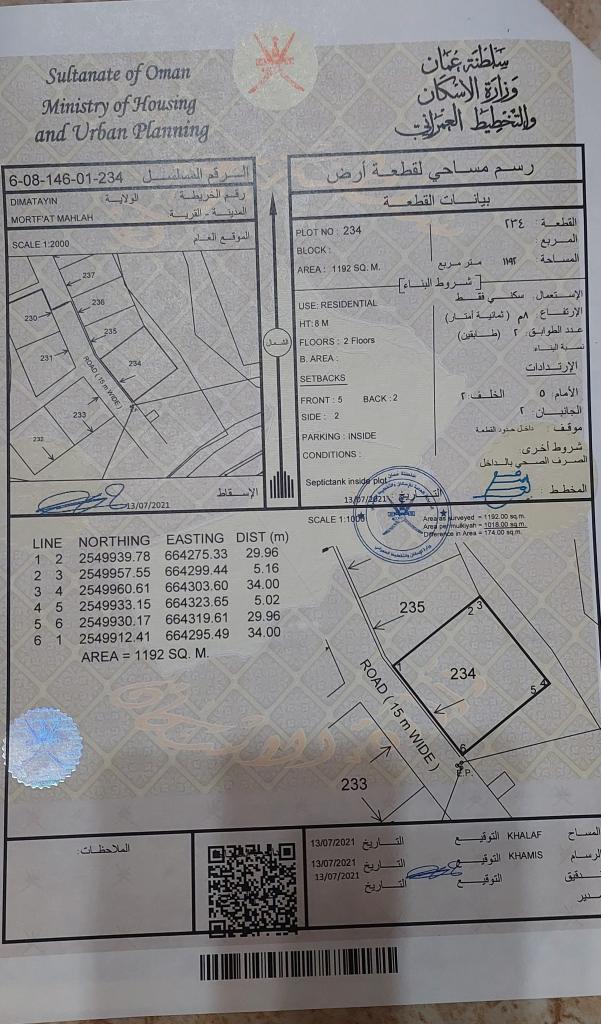 Sultanate of Oman
Ministry of Housing
and Urban Planning
سلطنة عُمان
وزارة الإسكان
والتخطيط العمراني
6-08-146-01-234 الرقم المتسلسل
DIMATAYIN الولاية: رقم الخريطة:
MORTF'AT MAHLAH المدينة - القرية:
SCALE 1:2000 الموقع العام
237
236
235
234
230
231
233
232
ROAD (15 m WIDE)
13/07/2021 الإسقاط
الشمال
رسم مساحي لقطعة أرض
بيانات القطعة
PLOT NO : 234
القطعة : ٢٣٤
BLOCK :
المربع :
AREA : 1192 SQ. M.
المساحة : ١١٩٢ متر مربع
[شروط البناء]
USE: RESIDENTIAL
الإستعمال: سكني فقط
HT: 8 M
الإرتفاع : ٨م (ثمانية أمتار)
FLOORS : 2 Floors
عدد الطوابق: ٢ (طابقين)
B. AREA :
نسبة البناء:
SETBACKS
الإرتدادات
FRONT : 5 BACK : 2
الأمام: ٥ الخلف: ٢
SIDE : 2
الجانبان: ٢
PARKING : INSIDE
موقف: داخل حدود القطعة
CONDITIONS :
شروط أخرى
Septictank inside plot
الصرف الصحي بالداخل
13/07/2021 التاريخ
المخطط
SCALE 1:1000
Area as surveyed = 1192.00 sq.m.
Area per mulkiyah = 1018.00 sq.m.
Difference in Area = 174.00 sq.m.
LINE NORTHING EASTING DIST (m)
1 2 2549939.78 664275.33 29.96
2 3 2549957.55 664299.44 5.16
3 4 2549960.61 664303.60 34.00
4 5 2549933.15 664323.65 5.02
5 6 2549930.17 664319.61 29.96
6 1 2549912.41 664295.49 34.00
AREA = 1192 SQ. M.
235
2 3
1
234
5
6
E.P.
ROAD ( 15 m WIDE )
233
الملاحظات:
المساح KHALAF التوقيع التاريخ 13/07/2021
الرسام KHAMIS التوقيع التاريخ 13/07/2021
التوقيع التاريخ 13/07/2021